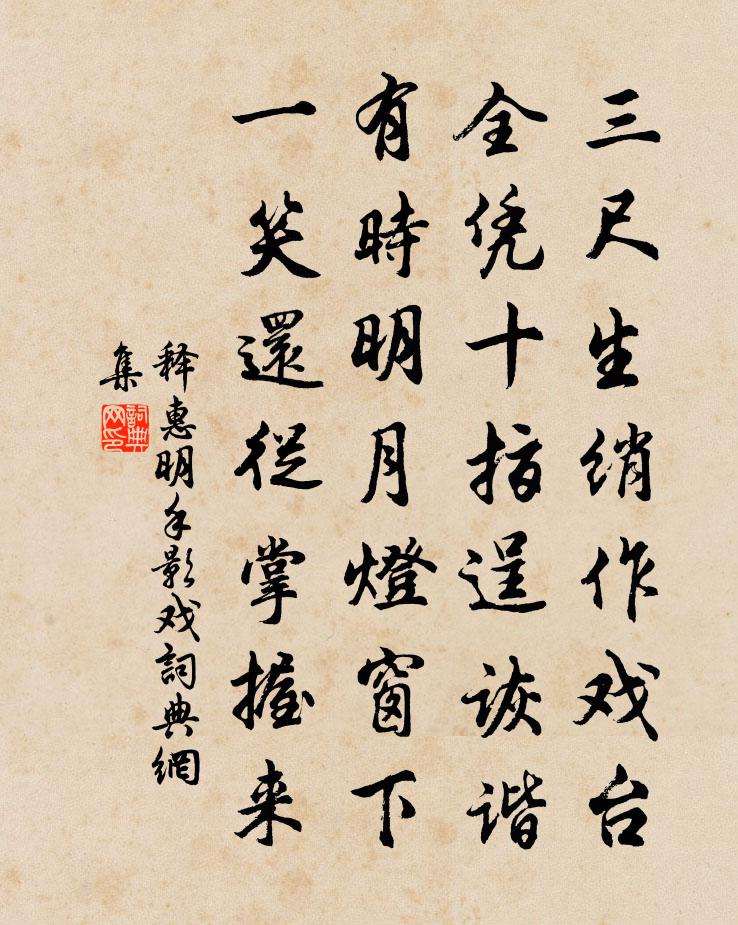 三尺生绡作戏台
全凭十指逞诙谐
有時明月燈窗下
一笑還從掌握来
释惠明手影戏詞典網
集
詞典
网印